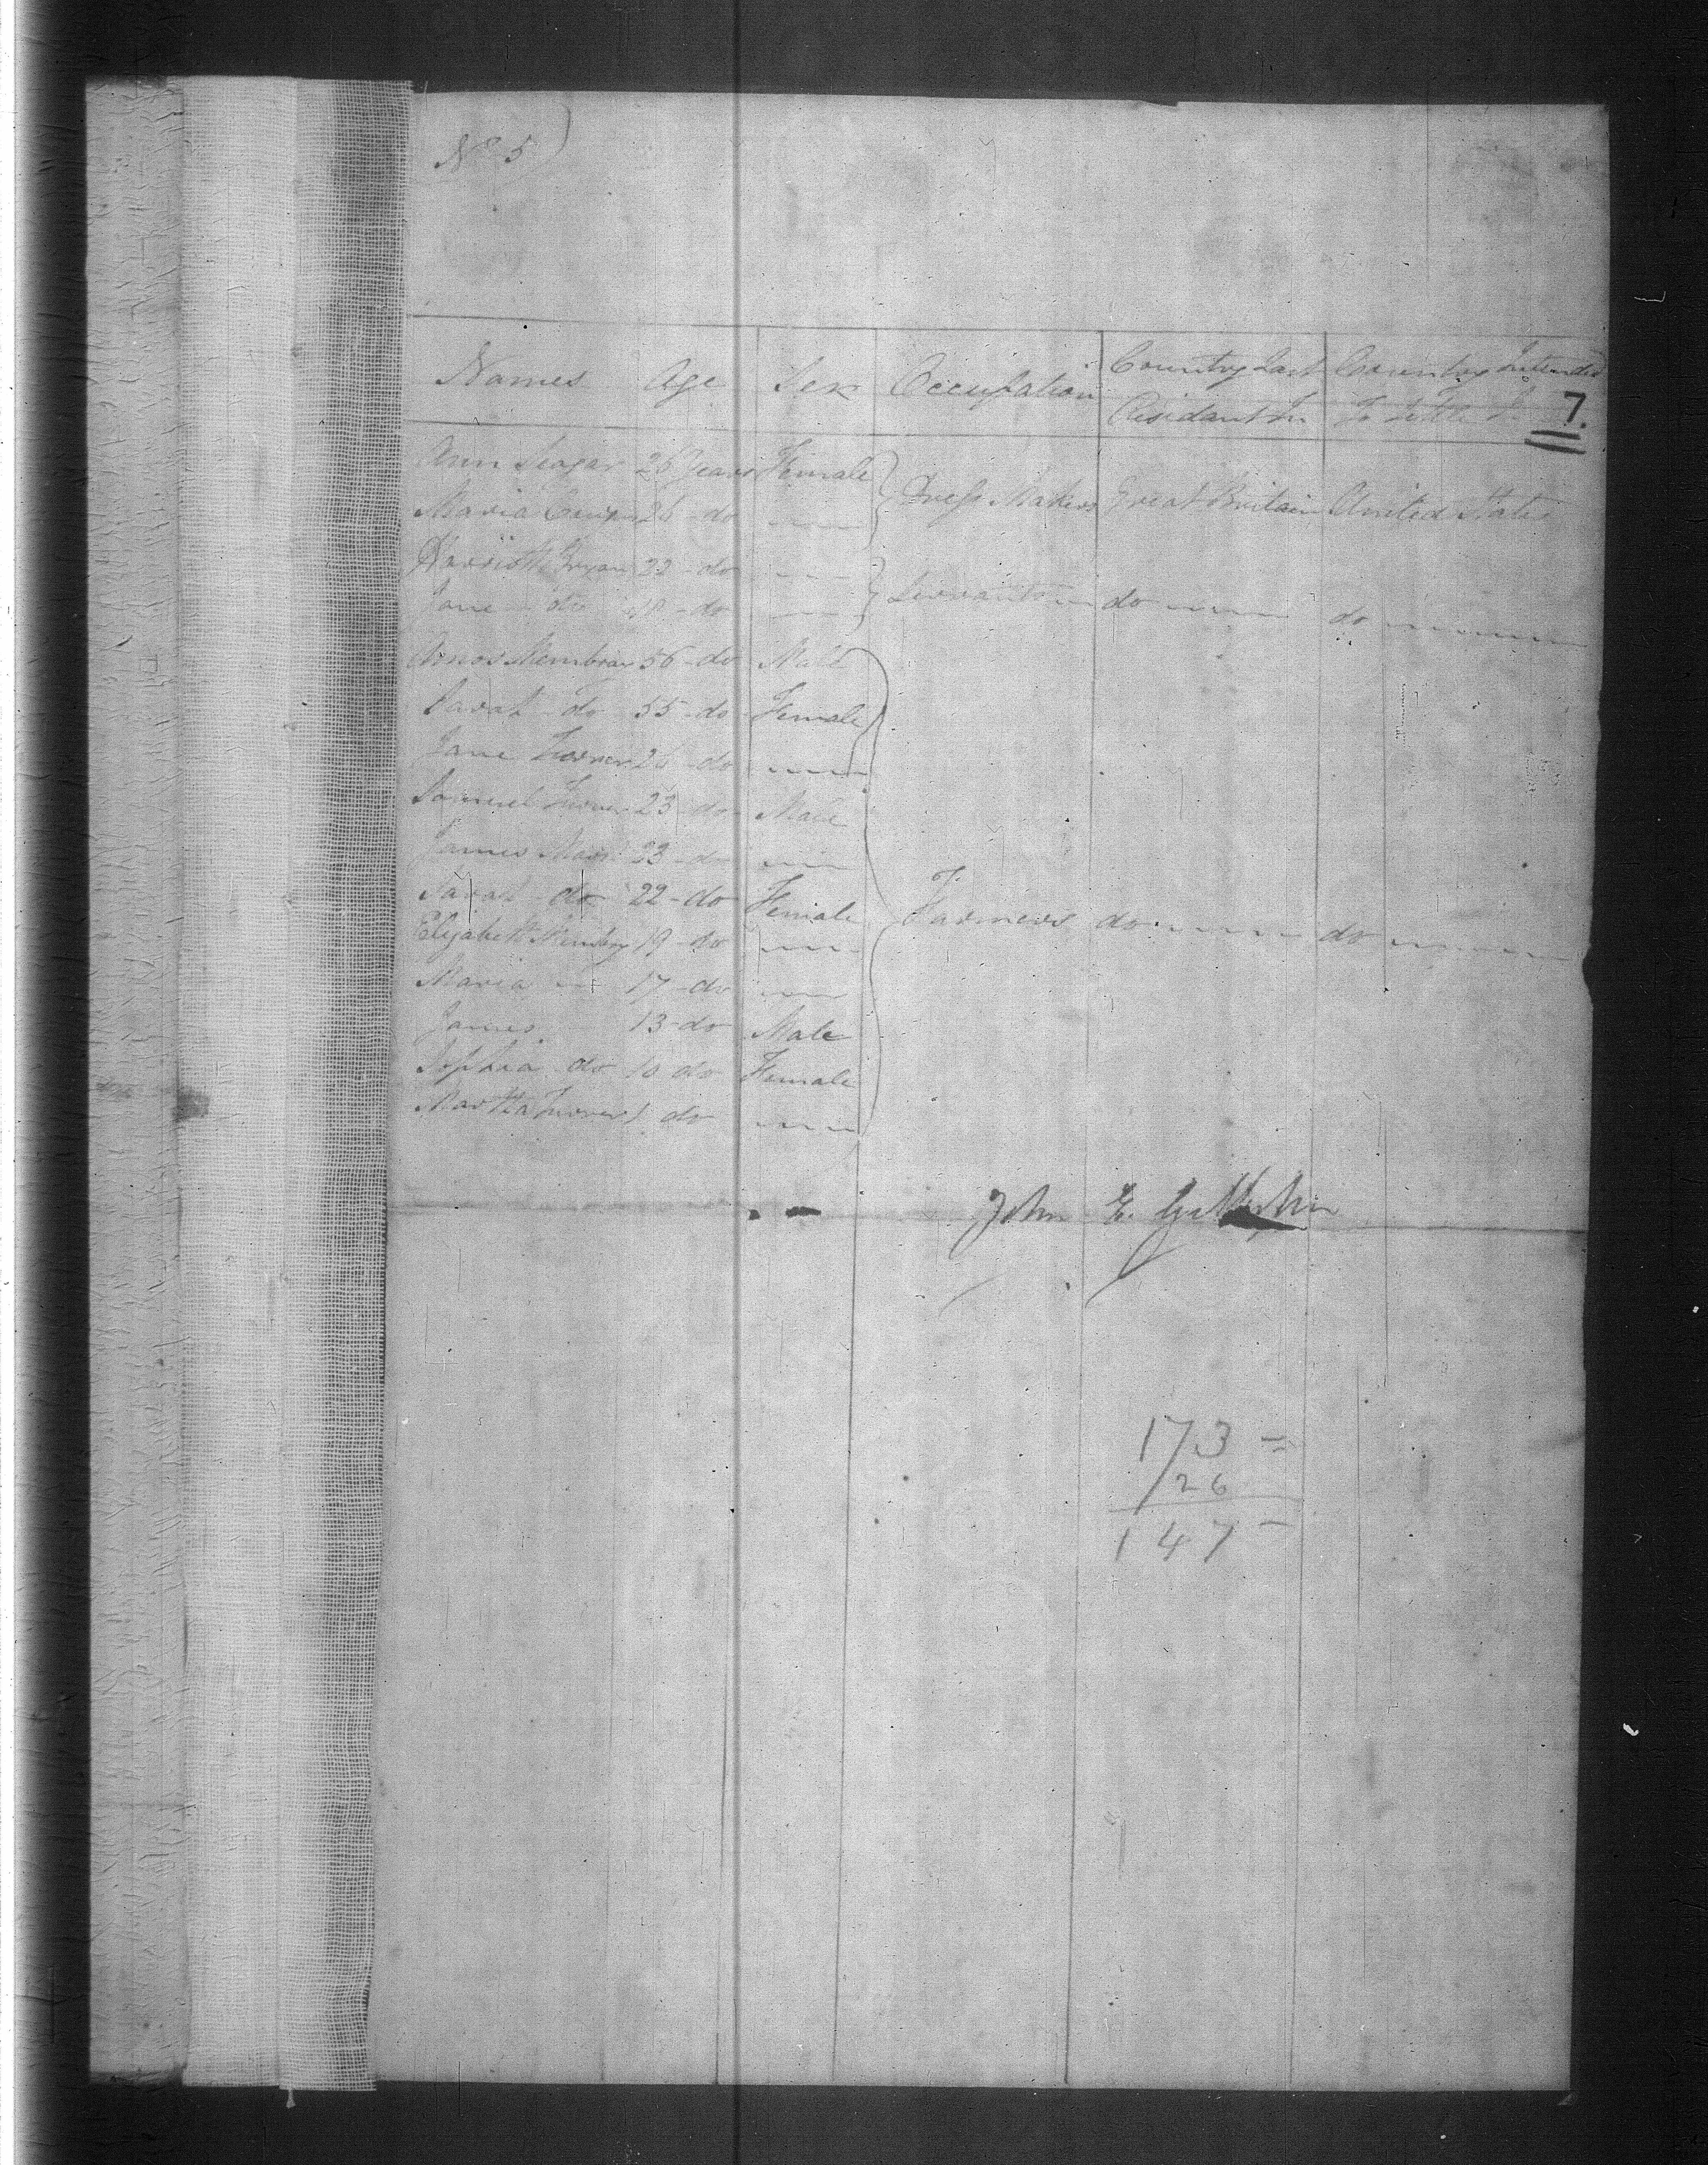 No 5)
Names Age Sex Occupation Country Last Residant In Country Intended To Settle In
7.
Ann Seagar 26 Years Female
Maria 26 - do Dress Makers Great Britain United States
Harriott Bryan 22 - do
Jane do 18 - do Servants do do
Amos Membray 56 - do Male
Sarah Do 55 - do Female
Jane Turner 26 - do
Samuel Turner 23 do Male
James 23 - do
Sarah do 22 - do Female Farmers do do
Elizabeth Membry 19 - do
Maria 17 - do
James 13 - do Male
Sophia do 10 do Female
Martha Turner 1 do
John E.
173 =
26
147 -